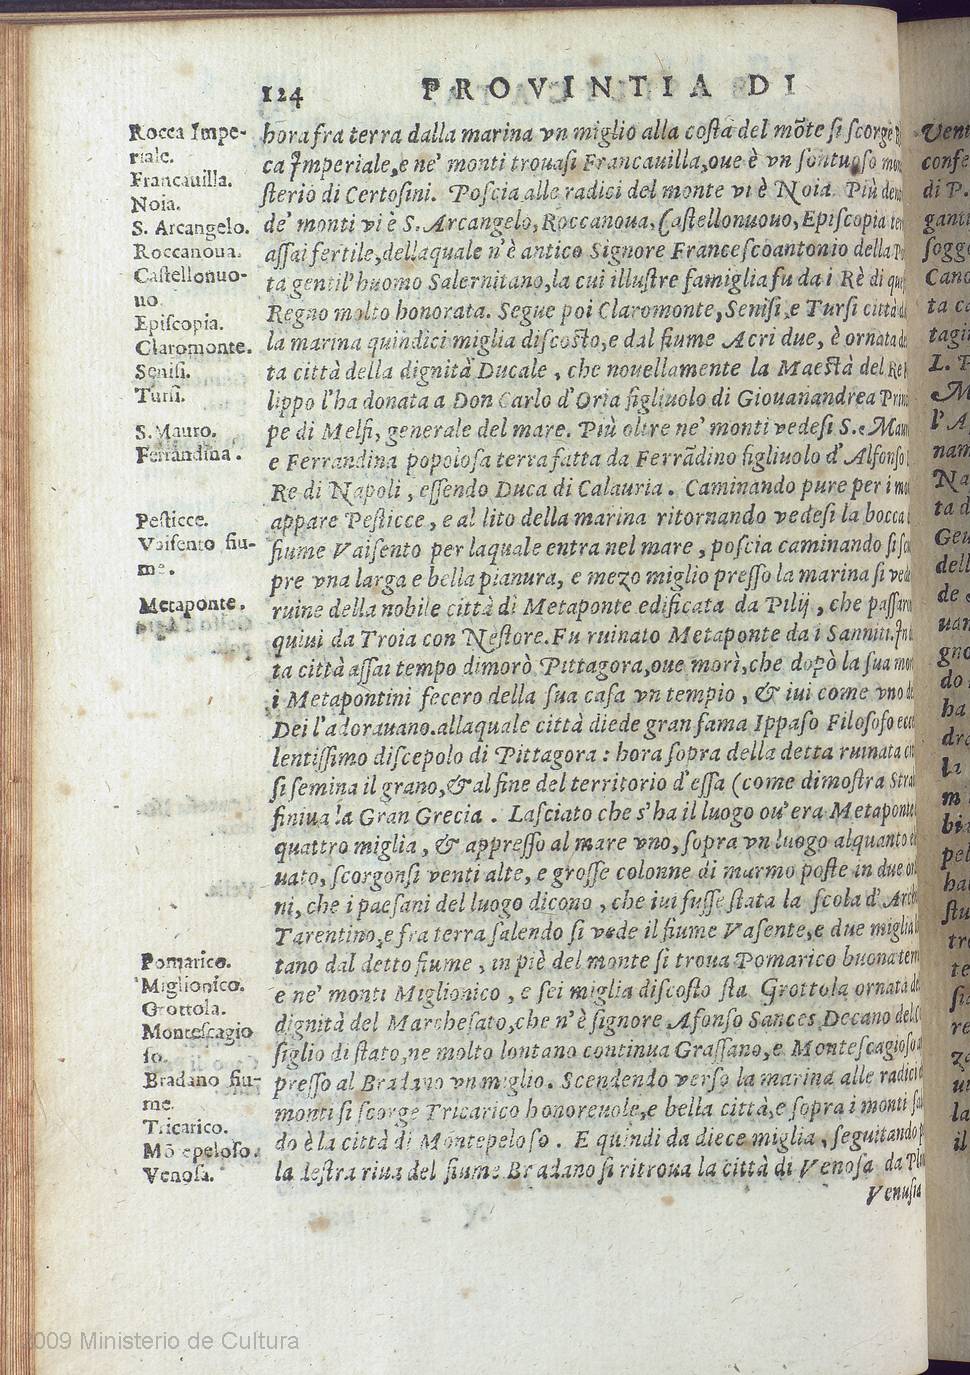 124 PROVINTIA DI
Rocca Impe-
riale.
Francauilla.
Noia.
S. Arcangelo.
Roccanoua.
Castellonuo-
uo.
Episcopia.
Claromonte.
Senisi.
Tursi.
S. Mauro.
Ferrandina.
Pesticce.
Vaisento fiu-
me.
Metaponte.
Pomarico.
Miglionico.
Grottola.
Montescagio
so.
Bradano fiu-
me.
Tricarico.
Mõtepeloso.
Venosa.
hora fra terra dalla marina vn miglio alla costa del mõte si scorge
ca Imperiale, e ne' monti trouasi Francauilla, oue è vn sontuoso
sterio di Certosini. Poscia alle radici del monte vi è Noia. Più
de' monti vi è S. Arcangelo, Roccanoua, Castellonuouo, Episcopia
assai fertile, dellaquale n'è antico Signore Francescoantonio della
ta gentil'huomo Salernitano, la cui illustre famiglia fu da i Rè di
Regno molto honorata. Segue poi Claromonte, Senisi, e Tursi città
la marina quindici miglia discosto, e dal fiume Acri due, è ornata
ta città della dignità Ducale, che nouellamente la Maestà del Re
lippo l'ha donata a Don Carlo d'Oria figliuolo di Giouanandrea
pe di Melfi, generale del mare. Più oltre ne' monti vedesi S.
e Ferrandina popolosa terra fatta da Ferrãdino figliuolo d'Alfonso
Re di Napoli, essendo Duca di Calauria. Caminando pure per i
appare Pesticce, e al lito della marina ritornando vedesi la bocca
fiume Vaisento per laquale entra nel mare, poscia caminando si
pre vna larga e bella pianura, e mezo miglio presso la marina si
ruine della nobile città di Metaponte edificata da Pilij, che
quiui da Troia con Nestore. Fu ruinato Metaponte da i Sanniti.
ta città assai tempo dimorò Pittagora, oue morì, che dopò la sua
i Metapontini fecero della sua casa vn tempio, & iui come vno
Dei l'adorauano. allaquale città diede gran fama Ippaso Filosofo
lentissimo discepolo di Pittagora: hora sopra della detta ruinata
si semina il grano, & al fine del territorio d'essa (come dimostra
finiua la Gran Grecia. Lasciato che s'ha il luogo ou'era Metaponte
quattro miglia, & appresso al mare vno, sopra vn luogo alquanto
uato, scorgonsi venti alte, e grosse colonne di marmo poste in due
ni, che i paesani del luogo dicono, che iui fusse stata la scola d'
Tarentino, e fra terra salendo si vede il fiume Vasente, e due miglia
tano dal detto fiume, in piè del monte si troua Pomarico buona
e ne' monti Miglionico, e sei miglia discosto sta Grottola ornata
dignità del Marchesato, che n'è signore Afonso Sances Decano del
siglio di stato, ne molto lontano continua Grassano, e Montescagioso
presso al Bradano vn miglio. Scendendo verso la marina alle radici
monti si scorge Tricarico honoreuole, e bella città, e sopra i monti
do è la città di Montepeloso. E quindi da diece miglia, seguitando
la destra riua del fiume Bradano si ritroua la città di Venosa da
Venusia
2009 Ministerio de Cultura